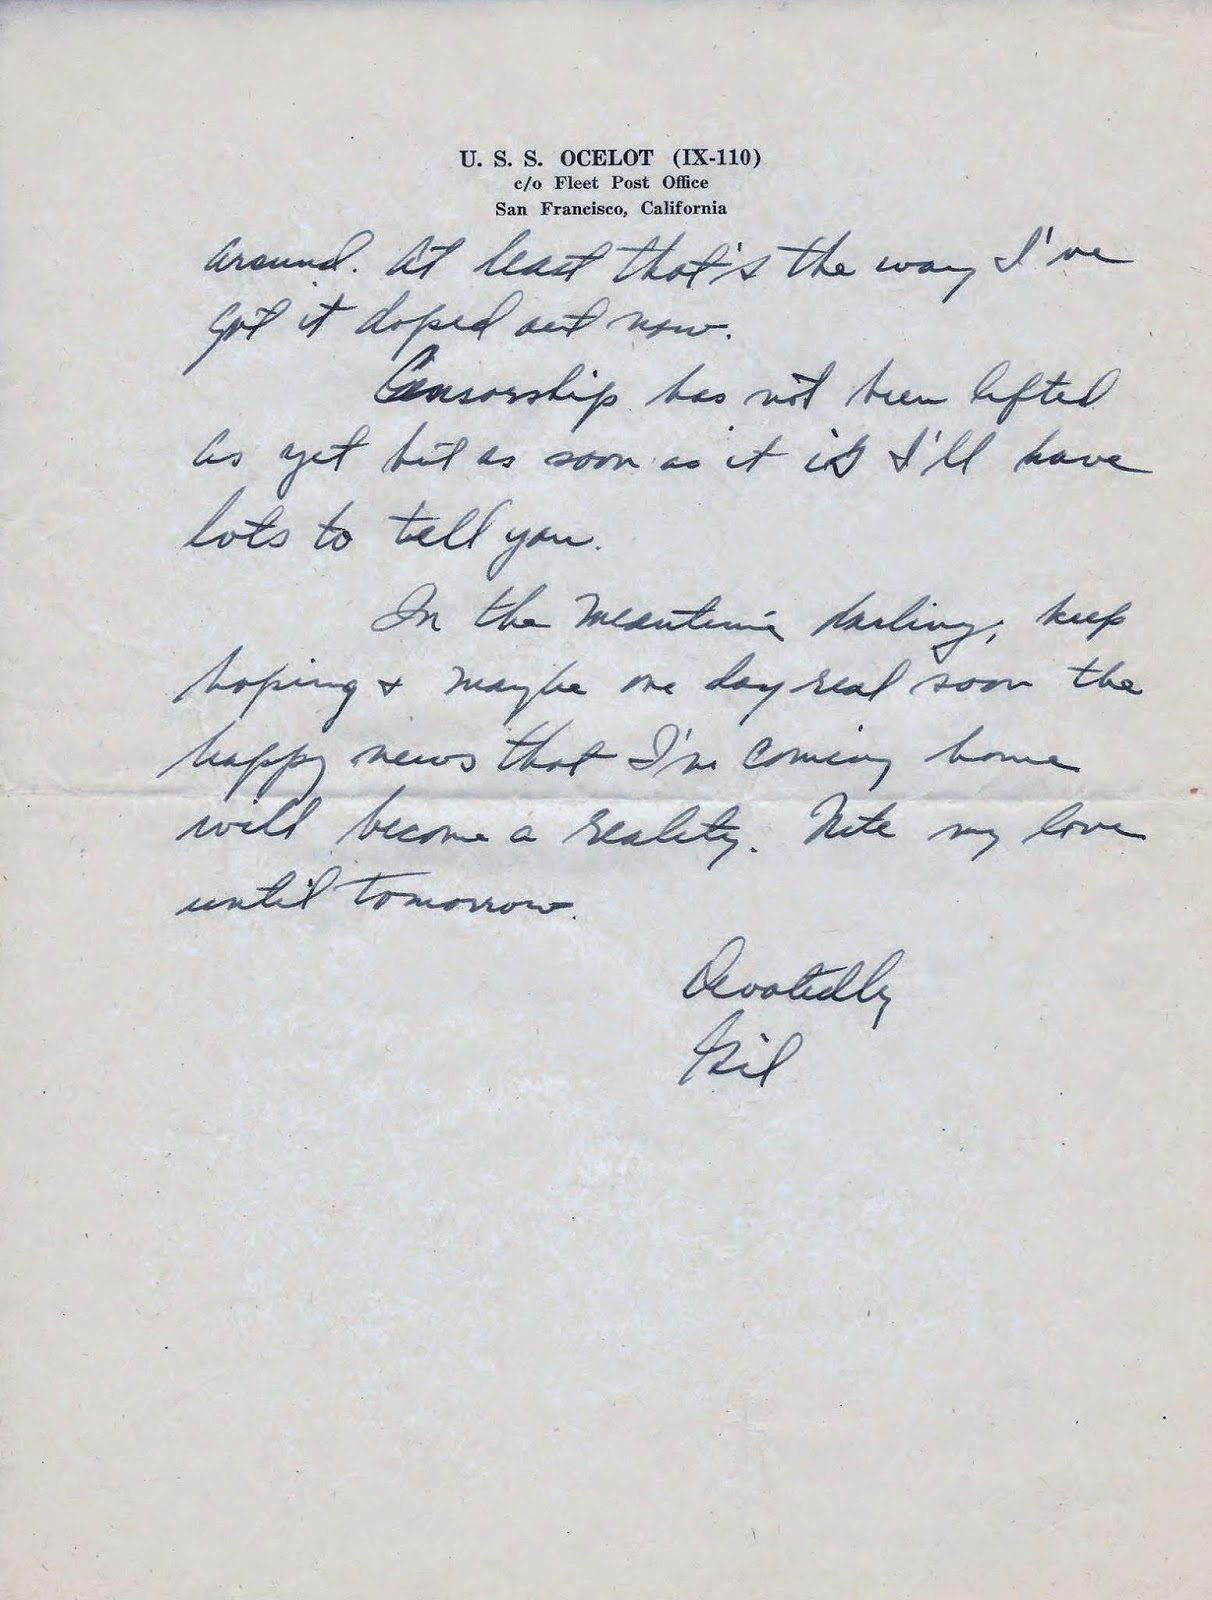 U. S. S. OCELOT (IX-110)
c/o Fleet Post Office
San Francisco, California
around. At least that's the way I've
got it doped out now.
Censorship has not been lifted
as yet but as soon as it is I'll have
lots to tell you.
In the meantime darling, keep
hoping & maybe one day real soon the
happy news that I'm coming home
will become a reality. Nite my love
until tomorrow.
Devotedly
Gil